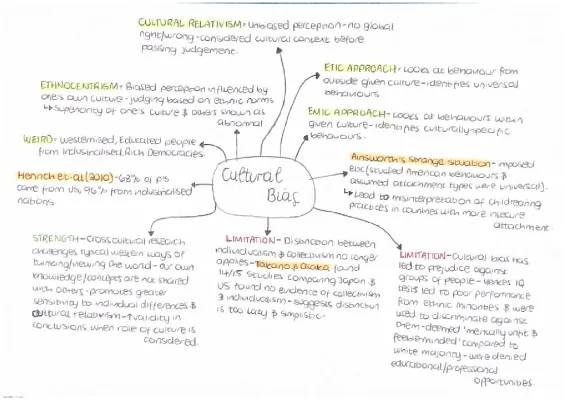 CULTURAL RELATIVISM - Unbiased perception - no global
right/wrong - considered cultural context before
passing judgement.
ETIC APPROACH - Looks at behaviour from
outside given culture - identifies universal
behaviours
ETHNOCENTRISM - Biased perception influenced by
one's own culture - judging based on ethnic norms
↳ Superiority of one's culture & others shown as
abnormal
EMIC APPROACH - Looks at behaviours within
given culture - identifies culturally-specific
behaviours.
WEIRD - Westernised, Educated people
from Industrialised, Rich Democracies.
Henrich et al (2010) - 68% of pps
came from US, 96% from industrialised
nations.
Cultural
Bias
Ainsworth's Strange Situation - imposed
etic (studied American behaviours &
assumed attachment types were universal).
↳ Lead to misinterpretation of childrearing
practices in countries with more insecure
attachment
STRENGTH - Cross cultural research
challenges typical western ways of
thinking/viewing the world - our own
knowledge/concepts are not shared
with others - promotes greater
sensitivity to individual differences &
cultural relativism - ↑ validity in
conclusions when role of culture is
considered.
LIMITATION - Distinction between
individualism & collectivism no longer
applies - Takano & Osaka found
14/15 studies comparing Japan &
US found no evidence of collectivism
& individualism - suggests distinction
is too lazy & simplistic.
LIMITATION - Cultural bias has
led to prejudice against
groups of people - IQ
tests led to poor performance
from ethnic minorities & were
used to discriminate against
them - deemed 'mentally unfit &
feebleminded' compared to
white majority - were denied
educational/professional
opportunities.